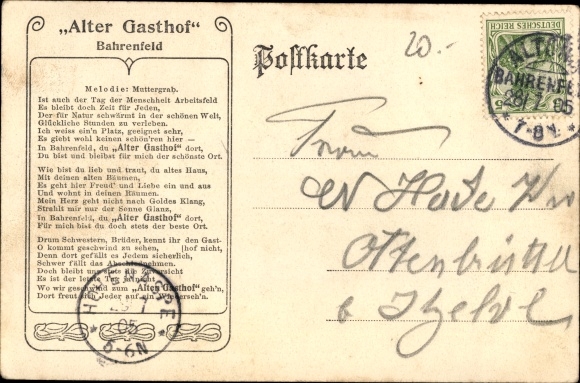 „Alter Gasthof“
Bahrenfeld
Melodie: Muttergrab.
Ist auch der Tag der Menschheit Arbeitsfeld
Es bleibt doch Zeit für Jeden,
Der für Natur schwärmt in der schönen Welt,
Glückliche Stunden zu verleben.
Ich weiss ein'n Platz, geeignet sehr,
Es giebt wohl keinen schön'ren hier —
In Bahrenfeld, du „Alter Gasthof“ dort,
Du bist und bleibst für mich der schönste Ort.
Wie bist du lieb und traut, du altes Haus,
Mit deinen alten Bäumen,
Es geht hier Freud' und Liebe ein und aus
Und wohnt in deinen Räumen.
Mein Herz geht nicht nach Goldes Klang,
Strahlt mir nur der Sonne Glanz,
In Bahrenfeld, du „Alter Gasthof“ dort,
Für mich bist du doch stets der beste Ort.
Drum Schwestern, Brüder, kennt ihr den Gast-
O kommt geschwind zu sehen, [hof nicht,
Denn dort gefällt es Jedem sicherlich,
Schwer fällt das
Doch bleibt uns
Es ist der letzte
Wo wir geschwind zum „Alten Gasthof“ geh'n,
Dort freut sich Jeder auf ein Wiederseh'n.
5-6N
Postkarte
20.-
DEUTSCHES REICH
5
ALTONA
BAHRENFELD
7-8N.
Frau
Itzehoe